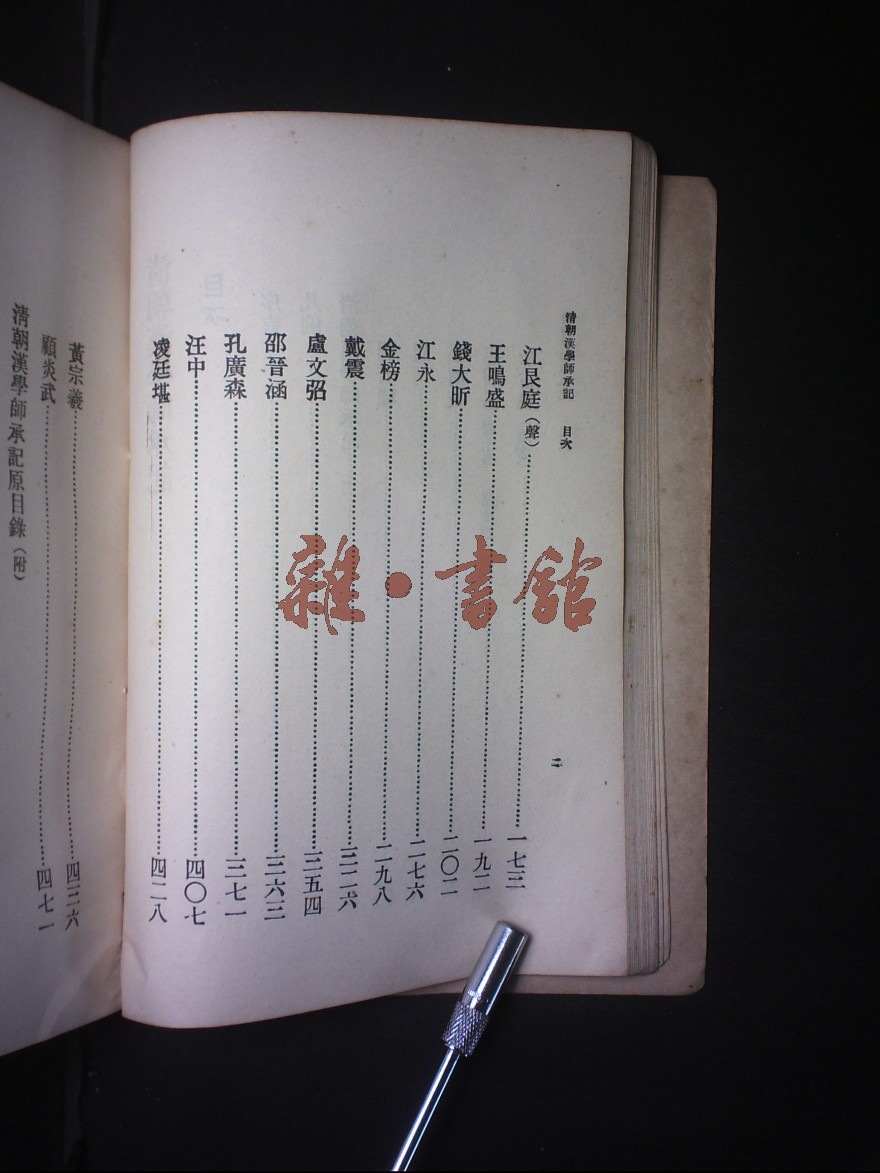 清朝漢學師承記 目次
二
江艮庭(聲)…一七三
王鳴盛…一九二
錢大昕…二〇二
江永…二七六
金榜…二九八
戴震…三二六
盧文弨…三五四
邵晉涵…三六三
孔廣森…三七一
汪中…四〇七
凌廷堪…四二八
黃宗羲…四三六
顧炎武…四七一
清朝漢學師承記原目錄(附)
雜·書館